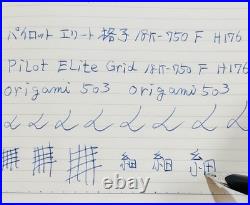 パイロット エリート 格子 18K-750 F H176
Pilot ELite Grid 18K-750 F H176
origami 503 origami 503
細 細 細